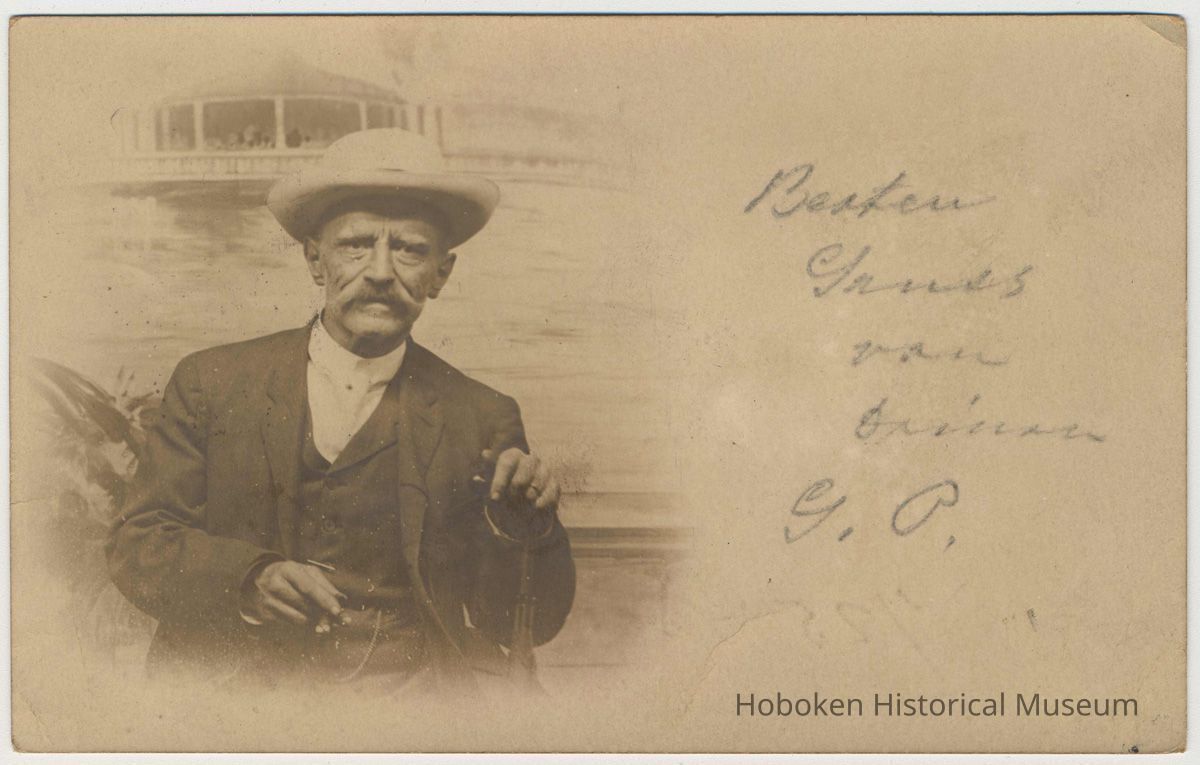 Besten
Gruss
von
Deinen
G. P.
Hoboken Historical Museum